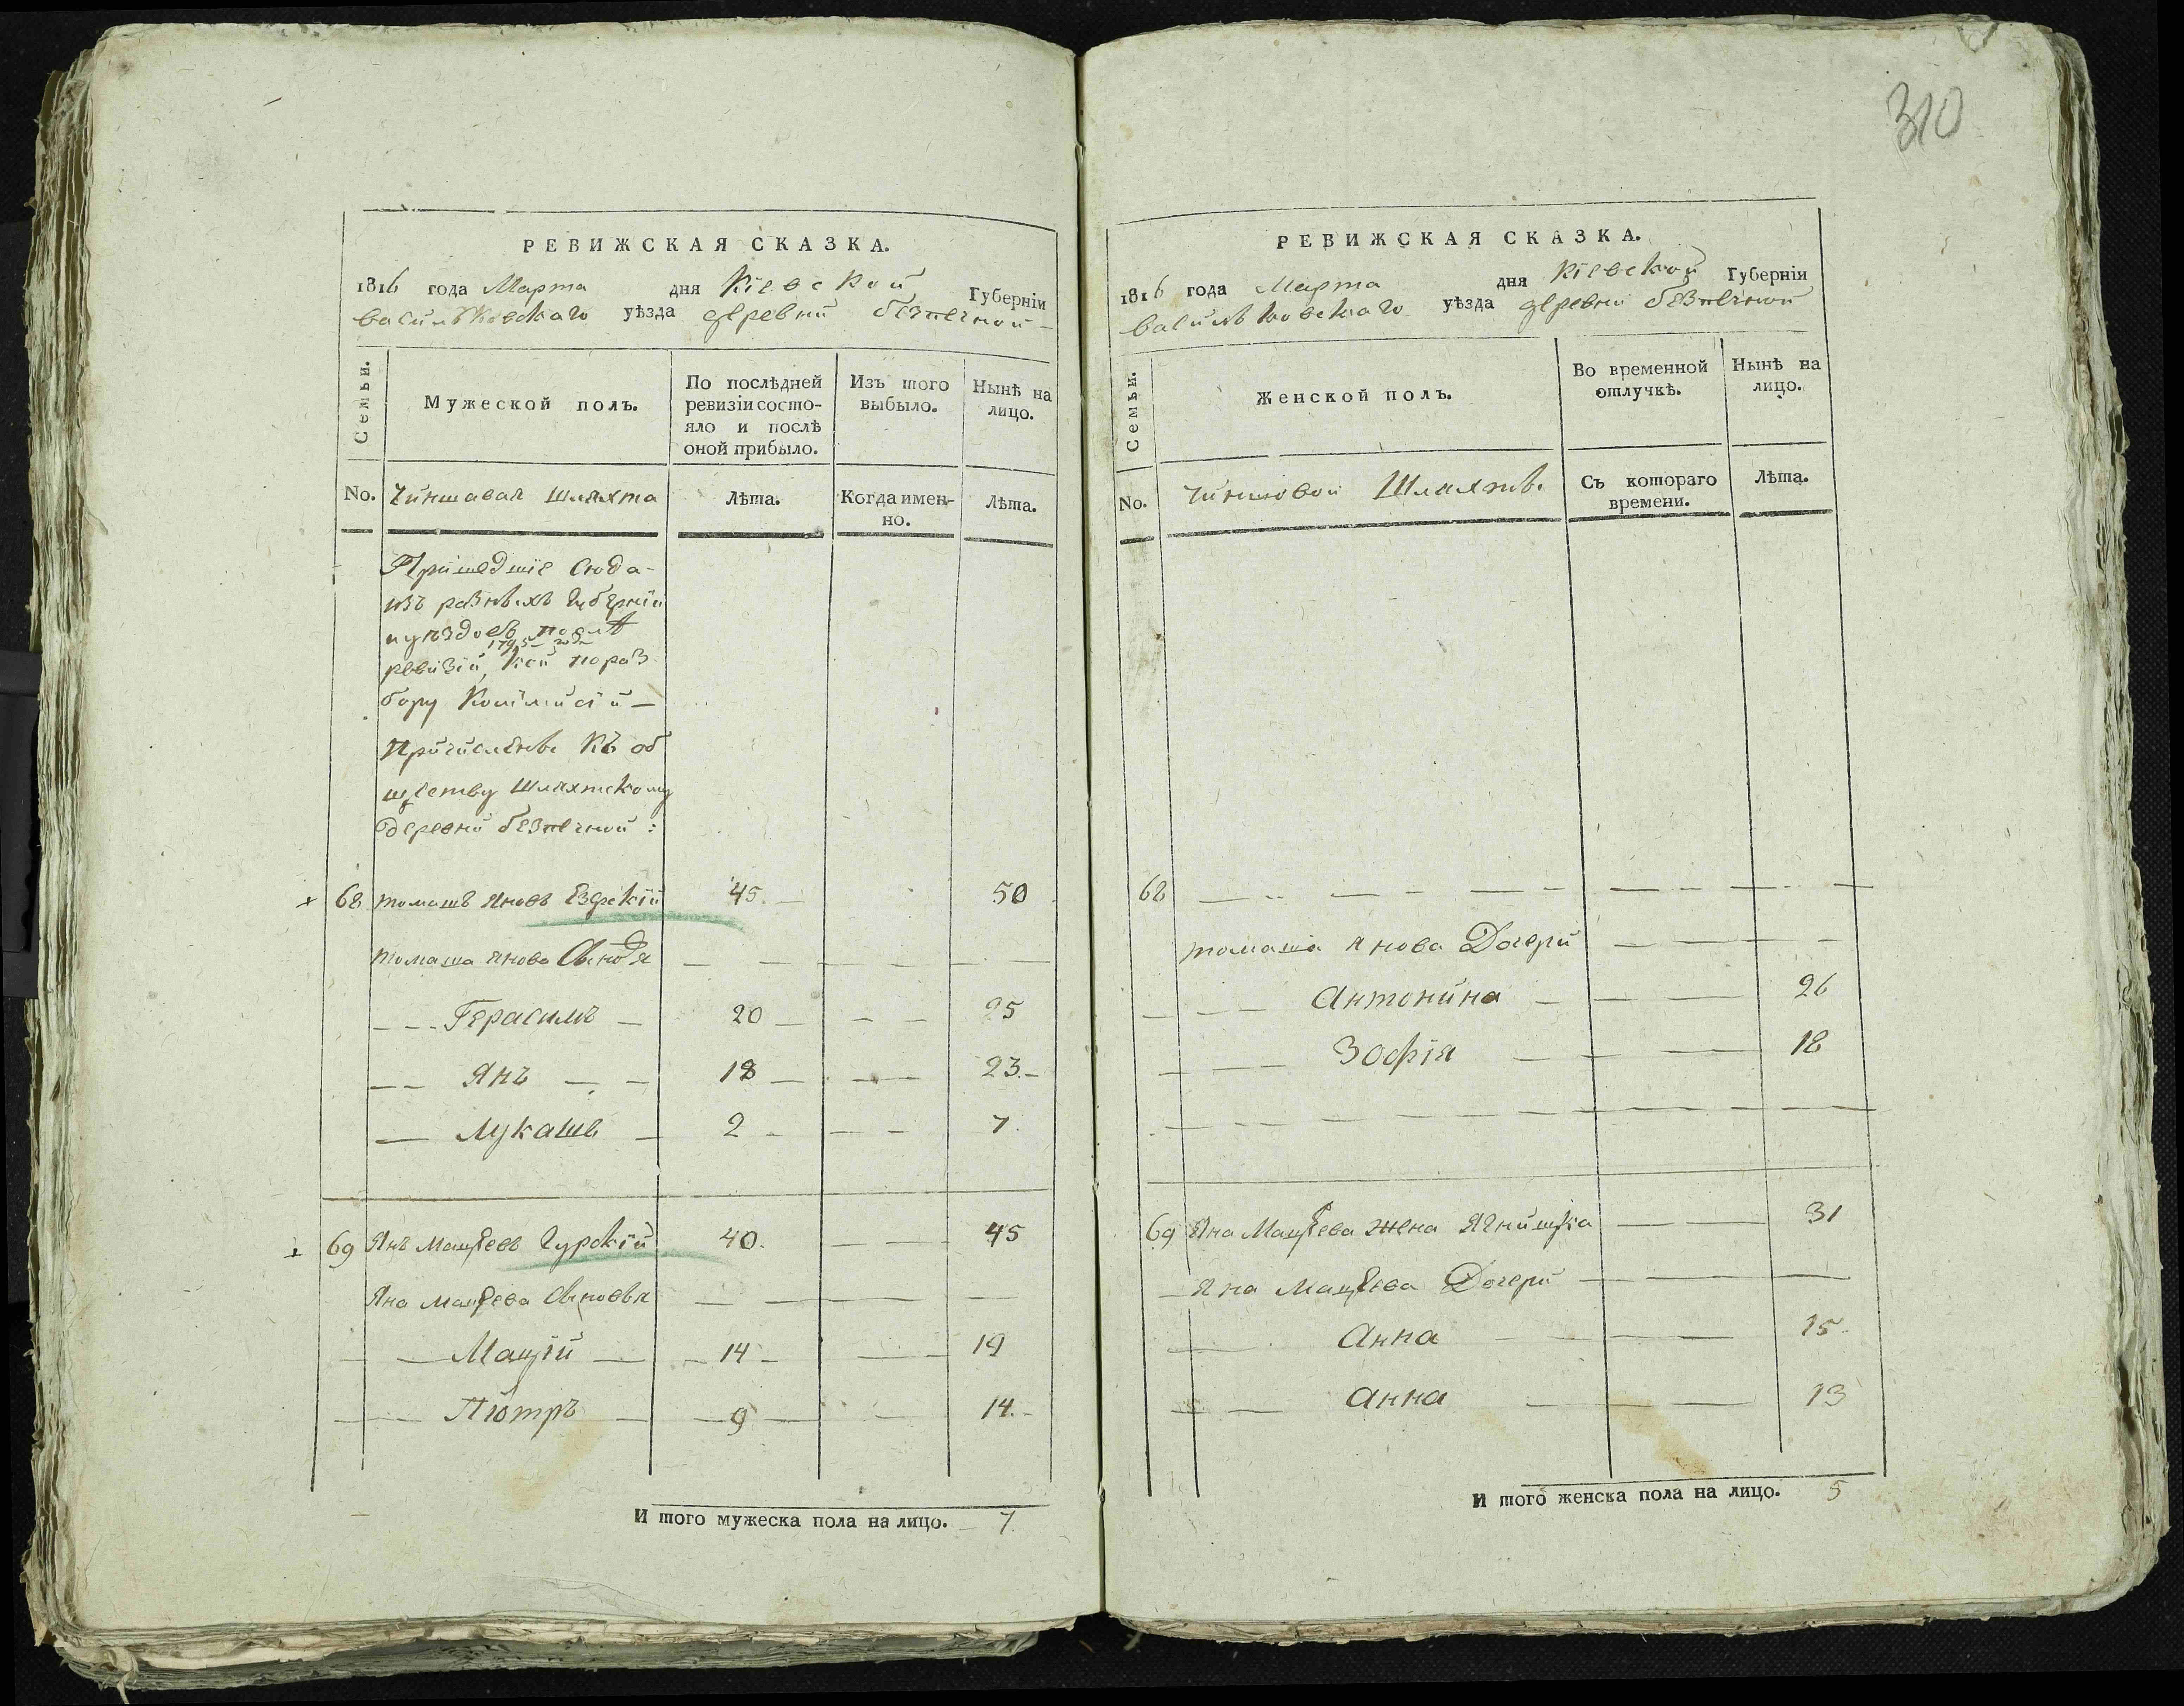 310
РЕВИЖСКАЯ СКАЗКА.
1816 года Марта дня Кіевской Губерніи
васильковскаго уѣзда деревни безпечной
Семьи.
Мужеской полъ.
По послѣдней ревизіи состояло и послѣ оной прибыло.
Изъ того выбыло.
Нынѣ на лицо.
No. Чиншавая шляхта Лѣта. Когда именно. Лѣта.
Пришедшіе сюда
изъ разныхъ губерній
и уѣздовъ послѣ
1795 года
ревизіи, кои по раз
бору Коммисіи
причислены къ об
ществу шляхтскому
деревни безпечной:
68 томашъ Яновъ 45. 50
томаша янова Сыновья
Герасимъ 20 25
Янъ 18 23
Лукашъ 2 7
69 Янъ Мацѣевъ Гурскій 40. 45
Яна мацѣева сыновья
Мацій 14 19
Піотръ 9 14
И того мужеска пола на лицо. 7.
РЕВИЖСКАЯ СКАЗКА.
1816 года Марта дня Кіевской Губерніи
васильковскаго уѣзда деревни безпечной
Семьи.
Женской полъ.
Во временной отлучкѣ.
Нынѣ на лицо.
No. Чиншовой Шляхты Съ котораго времени. Лѣта.
68
томаша янова Дочери
Антонина 26
Зофія 18
69 Яна Мацѣева жена Ягнишка 31
Яна Мацѣева Дочери
Анна 15
Анна 13
И того женска пола на лицо. 5